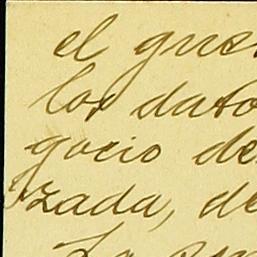 el que
los dato
gocio de
zada, de
La